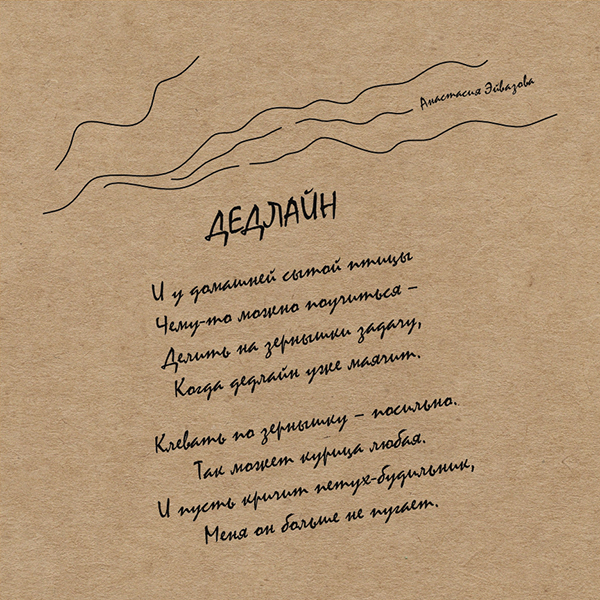 Анастасия Эйвазова
ДЕДЛАЙН
И у домашней сытой птицы
Чему-то можно поучиться –
Делить на зернышки задачу,
Когда дедлайн уже маячит.
Клевать по зернышку – посильно.
Так может курица любая.
И пусть кричит петух-будильник,
Меня он больше не пугает.